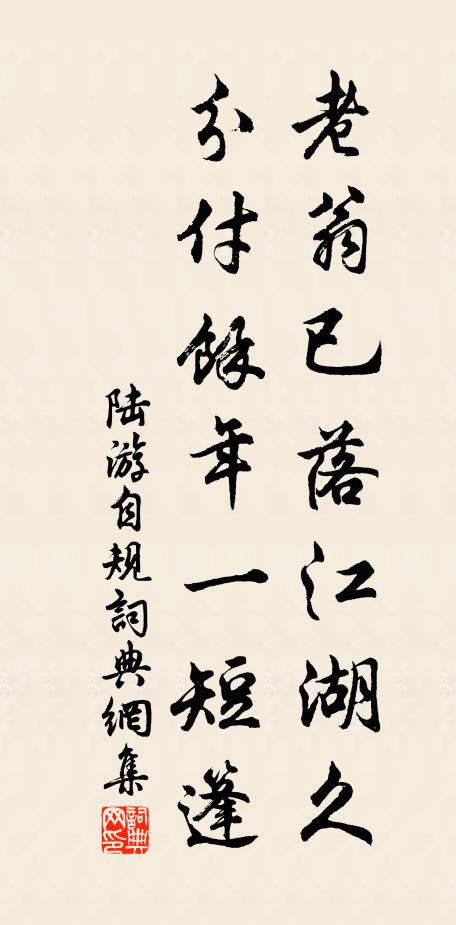 老翁已落江湖久
分付餘年一短篷
陆游自規詞典網集
詞典網印